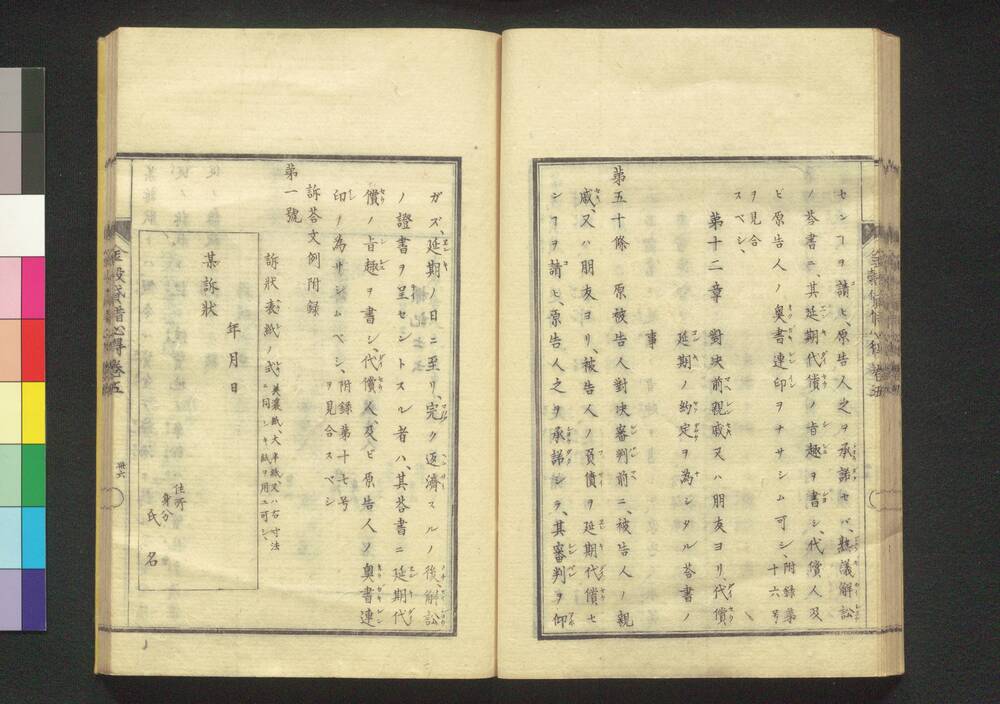 センコヲ請ヒ、原告人之ヲ承諾セバ、熟議解訟
ノ荅書ニ、其延期代償ノ旨趣ヲ書シ、代償人及
ビ原告人ノ奥書連印ヲナサシム可シ、附録第十六号
ヲ見合
スベシ、
第十二章　對决前親戚又ハ朋友ヨリ、代償
延期ノ約定ヲ為シタル荅書ノ
事
第五十條　原被告人對决審判前ニ、被告人ノ親
戚、又ハ朋友ヨリ、被告人ノ負債ヲ延期代償セ
ンコヲ請ヒ、原告人之ヲ承諾シテ、其審判ヲ仰
ガズ、延期ノ日ニ至リ、完ク返濟スルノ後、解訟
ノ證書ヲ呈セントスル者ハ、其荅書ニ延期代
償ノ旨趣ヲ書シ、代償人、及ビ原告人ノ奥書連
印ノ為サシムベシ、附録第十七号
ヲ見合スベシ
訴荅文例附録
第一號
訴状表紙ノ式　美濃紙、大半紙又ハ右寸法
ニ同シキ紙ヲ用ユ可シ、
年月日
某訴状
住所
身分
氏名
卷五
卅六